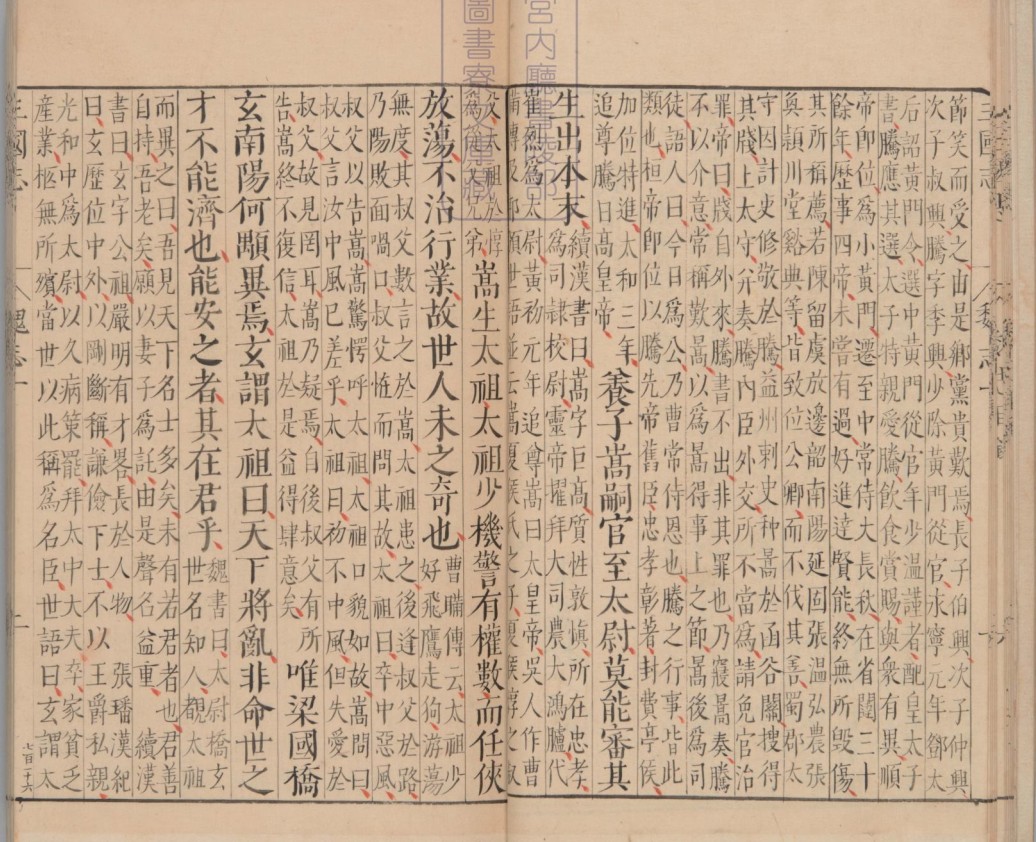 三國志
節笑而受之由是鄉黨貴歎焉長子伯興次子仲興
次子叔興騰字季興少除黃門從官永寧元年鄧太
后詔黃門令選中黃門從官年少溫謹者配皇太子
書騰應其選太子特親愛騰飲食賞賜與衆有異順
帝即位爲小黃門遷至中常侍大長秋在省闥三十
餘年歷事四帝未嘗有過好進達賢能終無所毀傷
其所稱薦若陳留虞放邊韶南陽延固張溫弘農張
奐潁川堂谿典等皆致位公卿而不伐其善蜀郡太
守因計吏修敬於騰益州刺史种暠於函谷關搜得
其牋上太守并奏騰內臣外交所不當爲請免官治
罪帝曰牋自外來騰書不出非其罪也乃寢暠奏騰
不以介意常稱歎暠以爲暠得事上之節暠後爲司
徒語人曰今日爲公乃曹常侍恩也騰之行事皆此
類也桓帝即位以騰先帝舊臣忠孝彰著封費亭侯
加位特進太和三年
追尊騰曰高皇帝
養子嵩嗣官至太尉莫能審其
生出本末
續漢書曰嵩字巨高質性敦愼所在忠孝
爲司隸校尉靈帝擢拜大司農大鴻臚代
崔烈爲太尉黃初元年追尊嵩曰太皇帝吳人作曹
瞞傳及郭頒世語並云嵩夏侯氏之子夏侯惇之叔
父太祖於惇
爲從父兄弟
嵩生太祖太祖少機警有權數而任俠
放蕩不治行業故世人未之奇也
曹瞞傳云太祖少
好飛鷹走狗游蕩
無度其叔父數言之於嵩太祖患之後逢叔父於路
乃陽敗面喎口叔父恠而問其故太祖曰卒中惡風
叔父以告嵩嵩驚愕呼太祖太祖口貌如故嵩問曰
叔父言汝中風已差乎太祖曰初不中風但失愛於
叔父故見罔耳嵩乃疑焉自後叔父有所
告嵩終不復信太祖於是益得肆意矣
唯梁國橋
玄南陽何顒異焉玄謂太祖曰天下將亂非命世之
才不能濟也能安之者其在君乎
魏書曰太尉橋玄
世名知人覩太祖
而異之曰吾見天下名士多矣未有若君者也君善
自持吾老矣願以妻子爲託由是聲名益重　續漢
書曰玄字公祖嚴明有才畧長於人物　張璠漢紀
曰玄歷位中外以剛斷稱謙儉下士不以王爵私親
光和中爲太尉以久病策罷拜太中大夫卒家貧乏
產業柩無所殯當世以此稱爲名臣世語曰玄謂太
三國志
魏志一
宮內廳書陵部
圖書寮